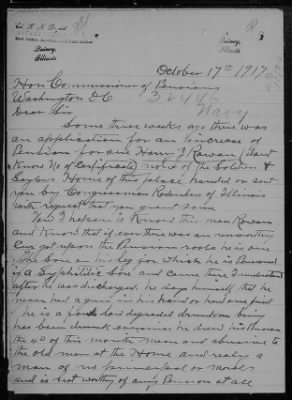 Quincy,
Illinois
Quincy,
Illinois
October 17th 1917.
Hon Commissioner of Pensions
Washington D.C.
Navy
Dear Sir
Some three weeks ago there was
an application for an increase of
Pension for one Henry J Rowan (dont
Know No of Certificate) none of the Soldiers &
Saylors Home of this place handed or sent
you by Congressman Rodenberg of Illinois
with request that you grant same
Now I happen to Know this man Rowan
and Know that if ever there was an unworthy
Cur got upon the Pension roles he is one
The Sore on his leg for which he is Pensioned
is a Syphilitic Sore and came there I understand
after he was discharged. he says himself that he
never had a gun in his hand or heard one fired
he is a low degraded drunkard having
has been drunk since he drew his Pension
the 4th of this month mean and abusive to
the old men at the Home and really a
man of no or morals
and is not worthy of any Pension at all